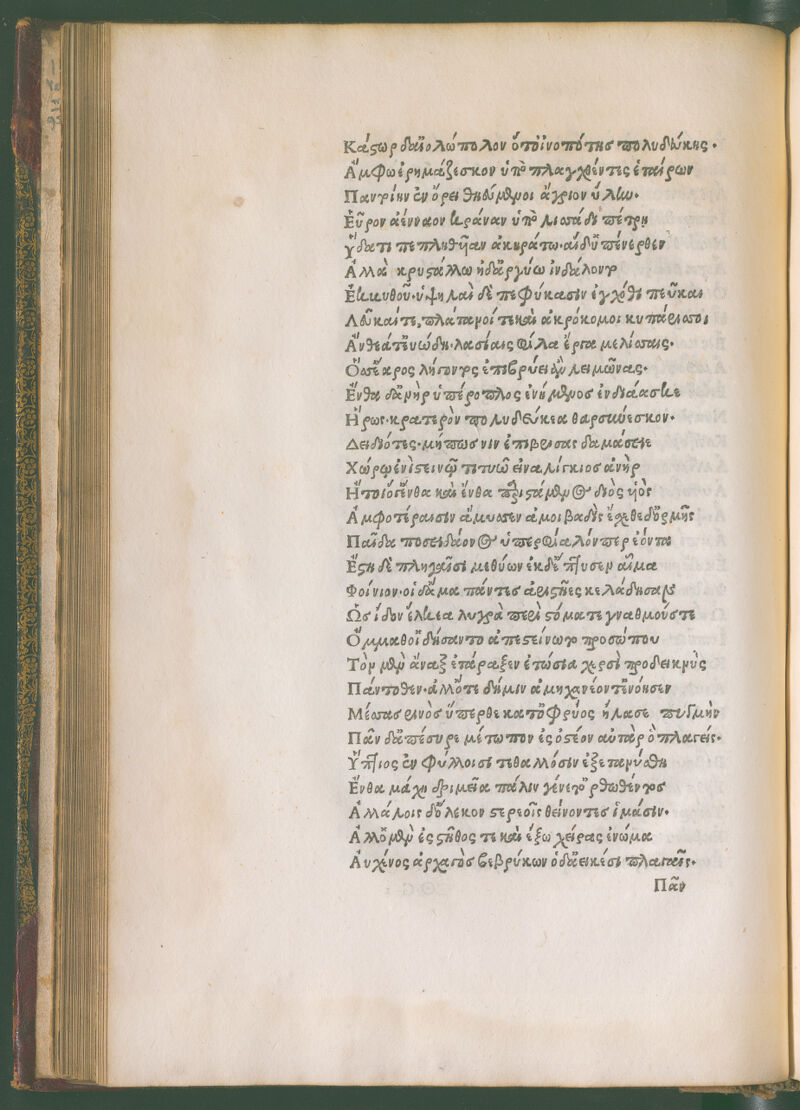 Κάστωρ δ' αἰολώπολον ὅτ' οἰνοπότης πολυδεύκης.
Ἄμφω ἐρημάζεσκον ὑποπλαγχθέντες ἑταίρων
Παντοίην ἐν ὄρει θηεύμενοι ἄγριον ὕλην.
Εὗρον ἀένναον κράναν ὑπὸ λισσάδι πέτρη
Ὕδατι πεπληθῆαν ἀκηράτω· αἱ δ' ὑπένερθεν
Ἀλλαὶ κρυστάλλω ἠδ' ἀργύρω ἰνδάλοντο
Ἐκ κυθοῦ· ὑψηλαὶ δὲ πεφύκασιν ἐγχόθι πεῦκαι
Λεῦκαί τε, πλάταγοί τε καὶ ἀκρόκομοι κυπάρισσοι
Ἄνθεά τ' εὐώδη· λασίαις φίλα ἔργα μελίσσαις.
Ὅσσ' ἔαρος λήγοντος ἐπιβρύει ἂν λειμῶνας.
Ἔνθα δ' ἀνὴρ ὑπέροπλος ἐνήμενος ἐνδιάασκε
Ἥρως· κρατερὸν πολυδεύκεα θαρσύνεσκον.
Δειδιότες· μήπως νιν ἐπιβρίσας δαμάσειε
Χώρῳ ἐνὶ στεινῷ τιτυῷ ἐναλίγκιος ἀνήρ
Ἤτοι ὅγ' ἔνθα καὶ ἔνθα παριστάμενος διὸς υἱὸς
Ἀμφοτέραισιν ἄμυσσεν ἀμοιβαδὶς ἔσχεθε δ' ὁρμῆς
Παῖδα ποσειδάονος ὑπερφίαλόν περ ἐόντα
Ἔστη δὲ πληγαῖσι μεθύων ἐκ δ' ἔπτυσεν αἷμα
Φοίνιον· οἱ δ' ἅμα πάντες ἀριστῆες κελάδησαν
Ὡς ἴδον ἕλκεα λυγρὰ περὶ στόμα τε γναθμούς τε
Ὄμμαθ' οἱ δήσαντο ἀπεστείνωτο προσώπου
Τὸν μὲν ἄναξ ἐτάραξεν ἐτώσια χερσὶ προδεικνὺς
Πάντοθεν· ἀλλ' ὅτε δή μιν ἀμηχανέοντ' ἐνόησεν
Μέσσας ῥινὸς ὕπερθε κατ' ὀφρύος ἤλασε πυγμὴν
Πᾶν δ' ἀπέσυρε μέτωπον ἐς ὀστέον αὐτὰρ ὁ πλαγείς.
Ὕπτιος ἐν φύλλοισι τεθαλλόσιν ἐξετανύσθη
Ἔνθα μάχη δριμεῖα πάλιν γένετ' ὀρθωθέντος
Ἀλλάλοις δ' ὄλεκον στερεοῖς θείνοντες ἱμάσιν.
Ἀλλ' ὁ μὲν ἐς στῆθος τε καὶ ἔξω χεῖρας ἐνώμα
Αὐχένος ἀρχαγὸς βεβρύκων ὁ δ' ἀεικέσι πλαγαῖς.
Πᾶν